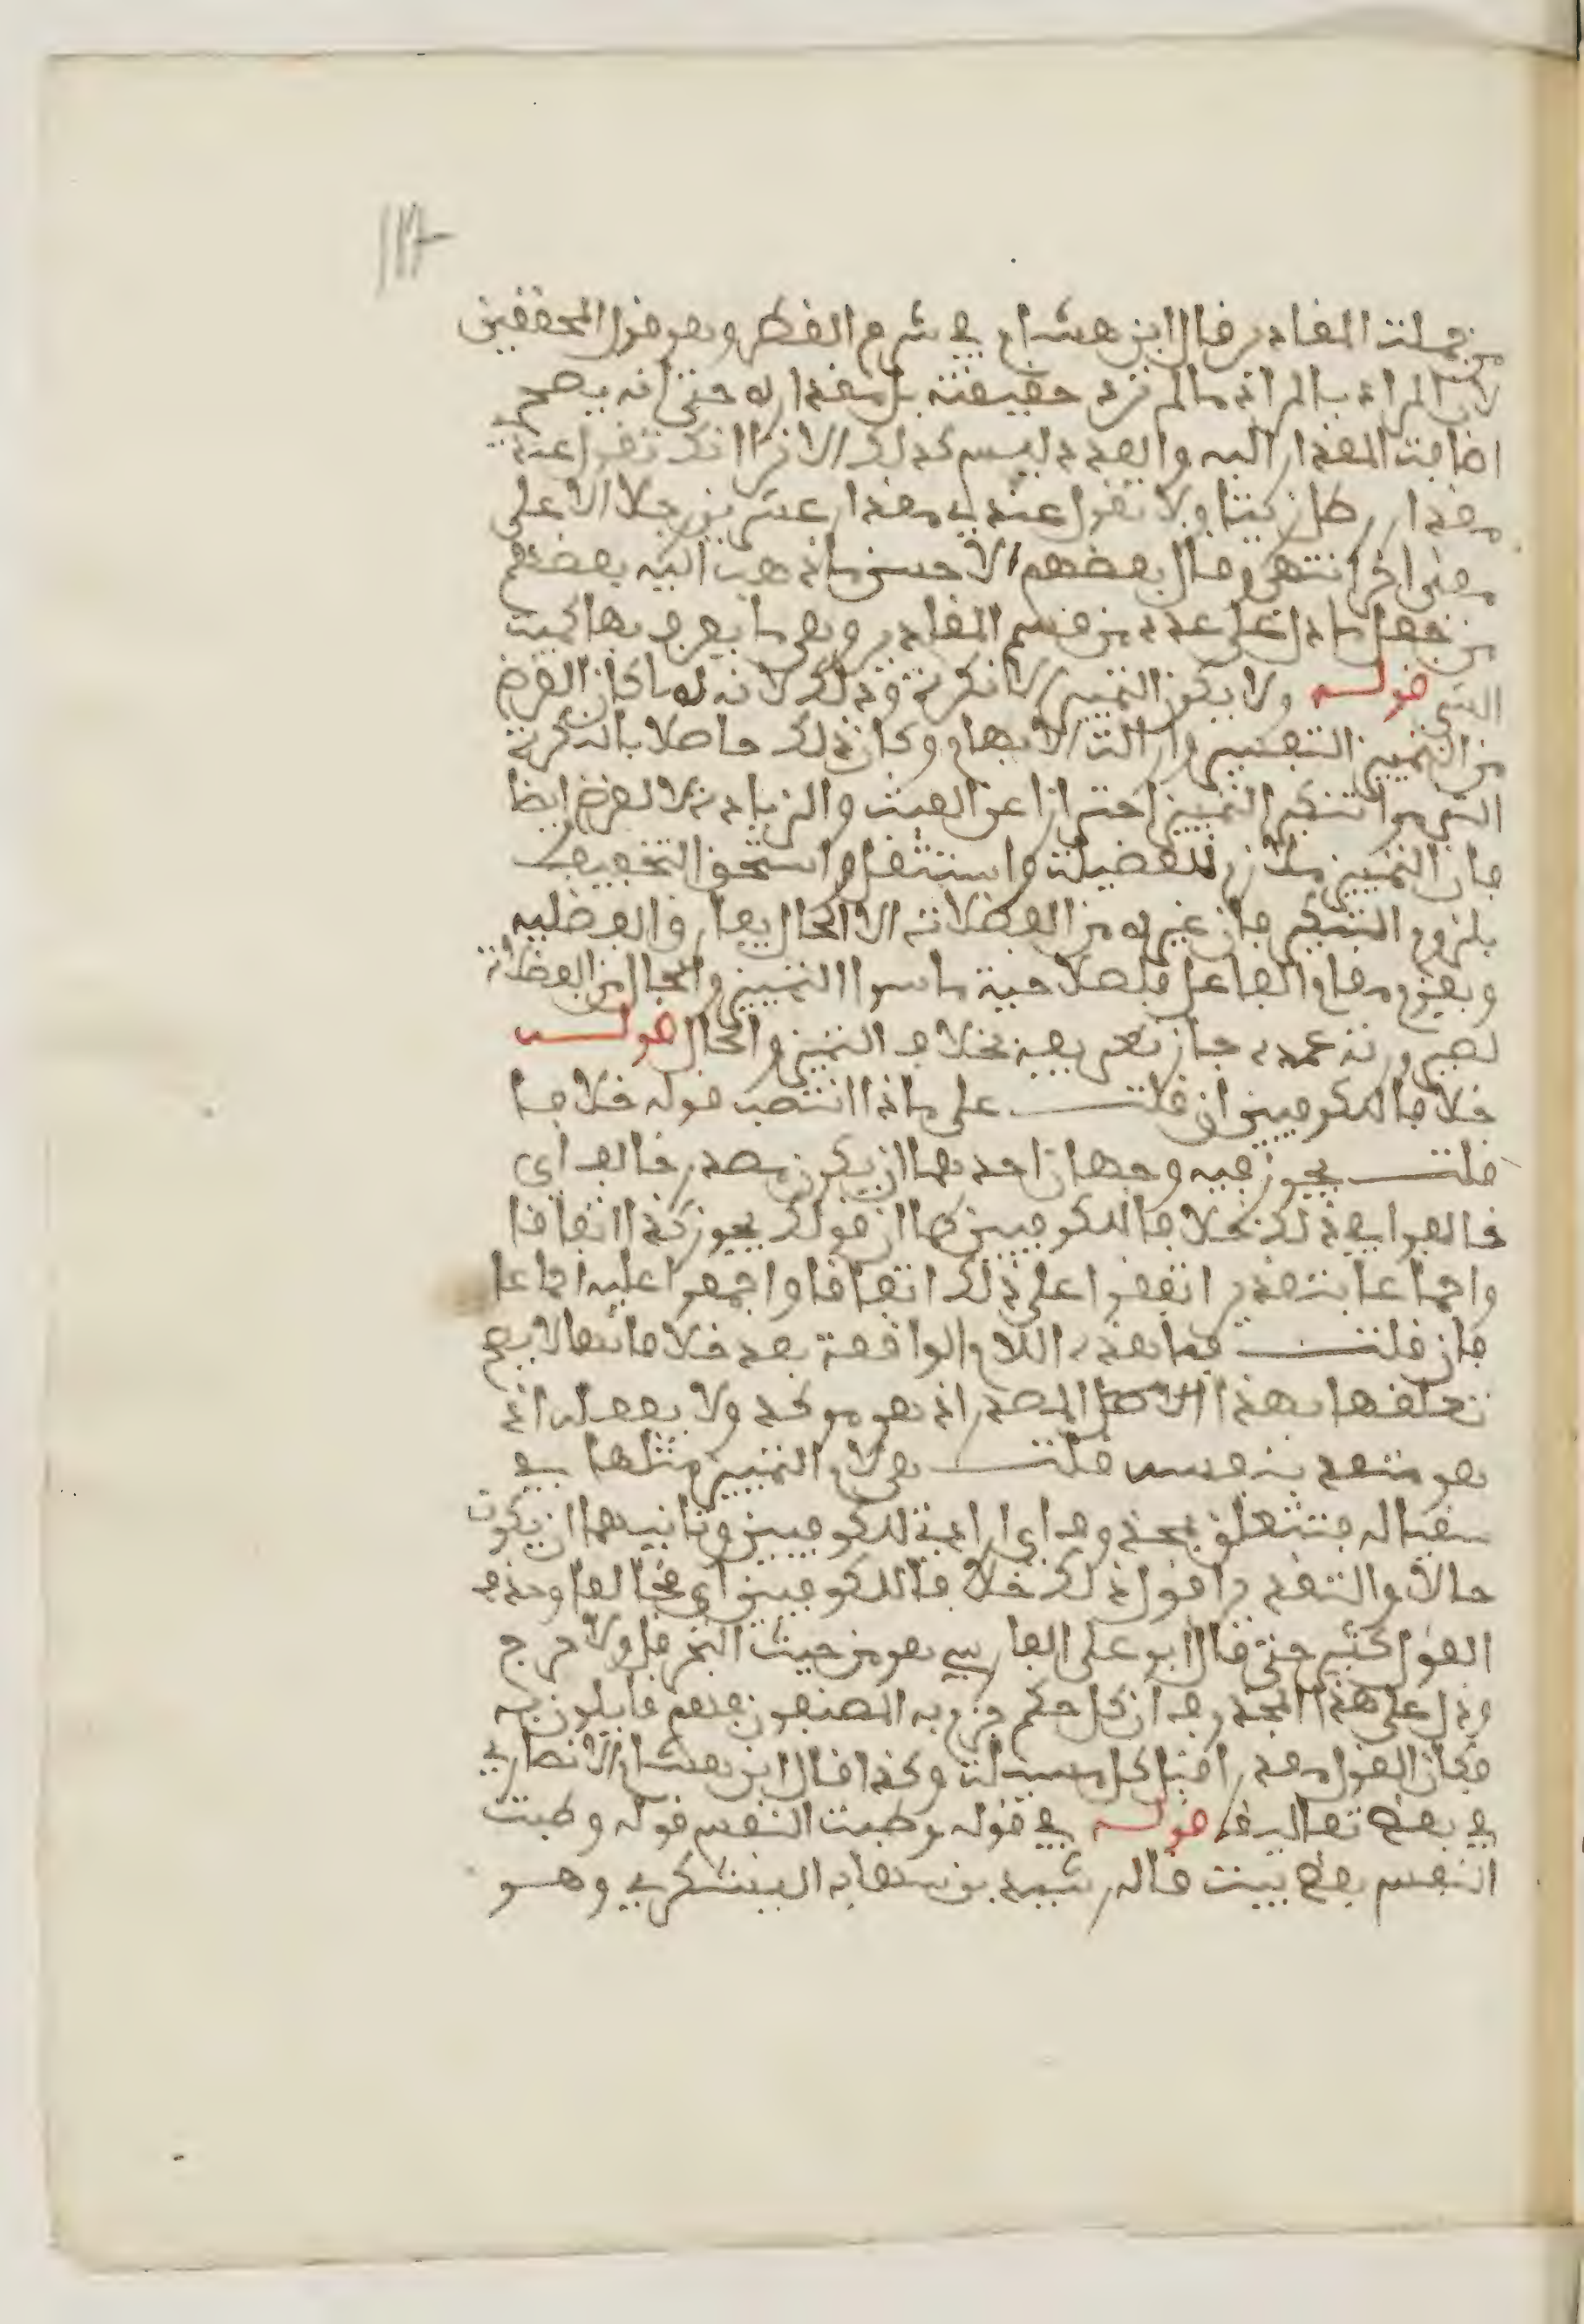 ١١٧
من جملت المقادر قال ابن هشام في شرح القطر وهو قول المحققين
لان المراد بالمراد مالم ترد حقيقته بل مقداره حتى انه يصح
اضافت المقدار اليه والعدد ليس كذلك الا ترا انك تقول عندي
مقدار رطل زيتا ولا تقول عندي مقدار عشرين رجلا الا على
معنى اخر انتهى وقال بعضهم الاحسن ما ذهب اليه بعضهم
من جعل ما دل على عدد من قسم المقادر وهي ما يعرف بها كميت
الشي قوله ولا يكون التمييز الا نكرة وذلك لانه لما كان الغرض
من التمييز التفسير وازالت الابهام وكان ذلك حاصلا بالنكرة
التزموا تنكير التمييز احترازا عن العبث والزيادة لا لغرض ايضا
فان التمييز ملازم للفضيلة واستثقل واستحق التخفيف
بلزوم التنكير فان غيره من الفضلات الا الحال يفارق الفضليه
ويقوم مقام الفاعل فلصلاحية ما سوا التمييز والحال من الفضلات
لصيرورته عمدة جاز تعريفه بخلاف التمييز والحال قوله
خلافا للكوفيين ان قلت على ماذا انتصب قوله خلافا
قلت يجوز فيه وجهان احدهما ان يكون مصدر خالف اي
خالفوا في ذلك خلافا للكوفيين كما ان قولك يجوز كذا اتفاقا
واجماعا بتقدير اتفقوا على ذلك اتفاقا واجمعوا عليه اجماعا
فان قلت فما تقدر اللام الواقعة بعد خلافا فانها لا يصح
تعلقها بهذا المصدر اذ هو موكد ولا بفعله اذ
هو متعد بنفسه قلت هي لام التبيين مثلها في
سقيا له فتتعلق بمحذوف اي ارادة للكوفيين وثانيهما ان يكون
حالا والتقدير اقول ذلك خلافا للكوفيين اي مخالفا وحذف
القول كثير حتى قال ابو علي الفارسي هو من حيث البحر قل ولا حرج
ودل على هذا المحذوف ان كل حكم جزم به المصنفون فهم قايلون به
فكان القول مقدر قبل كل مسيلة وكذا قال ابن هشام الانصاري
في بعض تعاليقه قوله في قوله وطبت النفس قوله وطبت
النفس بعض بيت قاله رشيد بن شهاب اليشكري وهو